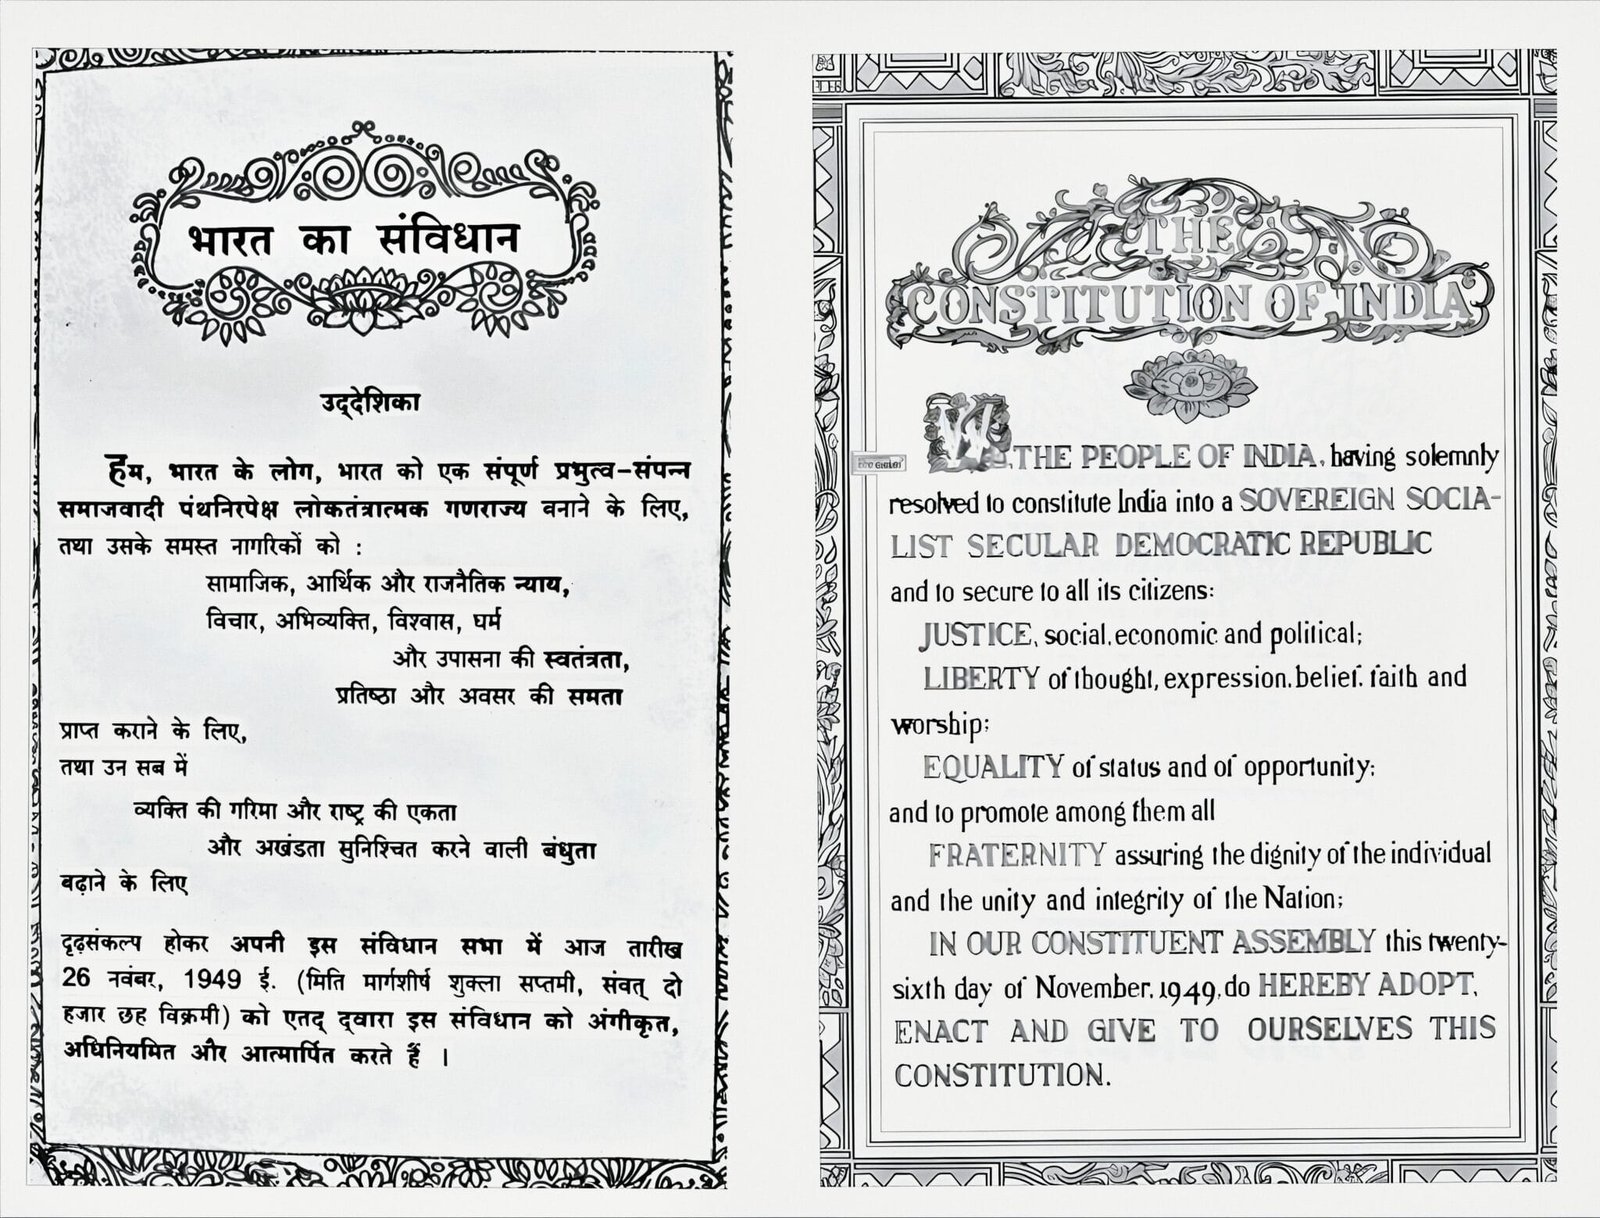 भारत का संविधान
उद्देशिका
हम, भारत के लोग, भारत को एक संपूर्ण प्रभुत्व-संपन्न
समाजवादी पंथनिरपेक्ष लोकतंत्रात्मक गणराज्य बनाने के लिए,
तथा उसके समस्त नागरिकों को :
सामाजिक, आर्थिक और राजनैतिक न्याय,
विचार, अभिव्यक्ति, विश्वास, धर्म
और उपासना की स्वतंत्रता,
प्रतिष्ठा और अवसर की समता
प्राप्त कराने के लिए,
तथा उन सब में
व्यक्ति की गरिमा और राष्ट्र की एकता
और अखंडता सुनिश्चित करने वाली बंधुता
बढ़ाने के लिए
दृढ़संकल्प होकर अपनी इस संविधान सभा में आज तारीख
26 नवंबर, 1949 ई. (मिति मार्गशीर्ष शुक्ला सप्तमी, संवत् दो
हजार छह विक्रमी) को एतद् द्वारा इस संविधान को अंगीकृत,
अधिनियमित और आत्मार्पित करते हैं ।
THE
CONSTITUTION OF INDIA
WE, THE PEOPLE OF INDIA, having solemnly
resolved to constitute India into a SOVEREIGN SOCIA-
LIST SECULAR DEMOCRATIC REPUBLIC
and to secure to all its citizens:
JUSTICE, social, economic and political;
LIBERTY of thought, expression, belief, faith and
worship;
EQUALITY of status and of opportunity;
and to promote among them all
FRATERNITY assuring the dignity of the individual
and the unity and integrity of the Nation;
IN OUR CONSTITUENT ASSEMBLY this twenty-
sixth day of November, 1949, do HEREBY ADOPT,
ENACT AND GIVE TO OURSELVES THIS
CONSTITUTION.